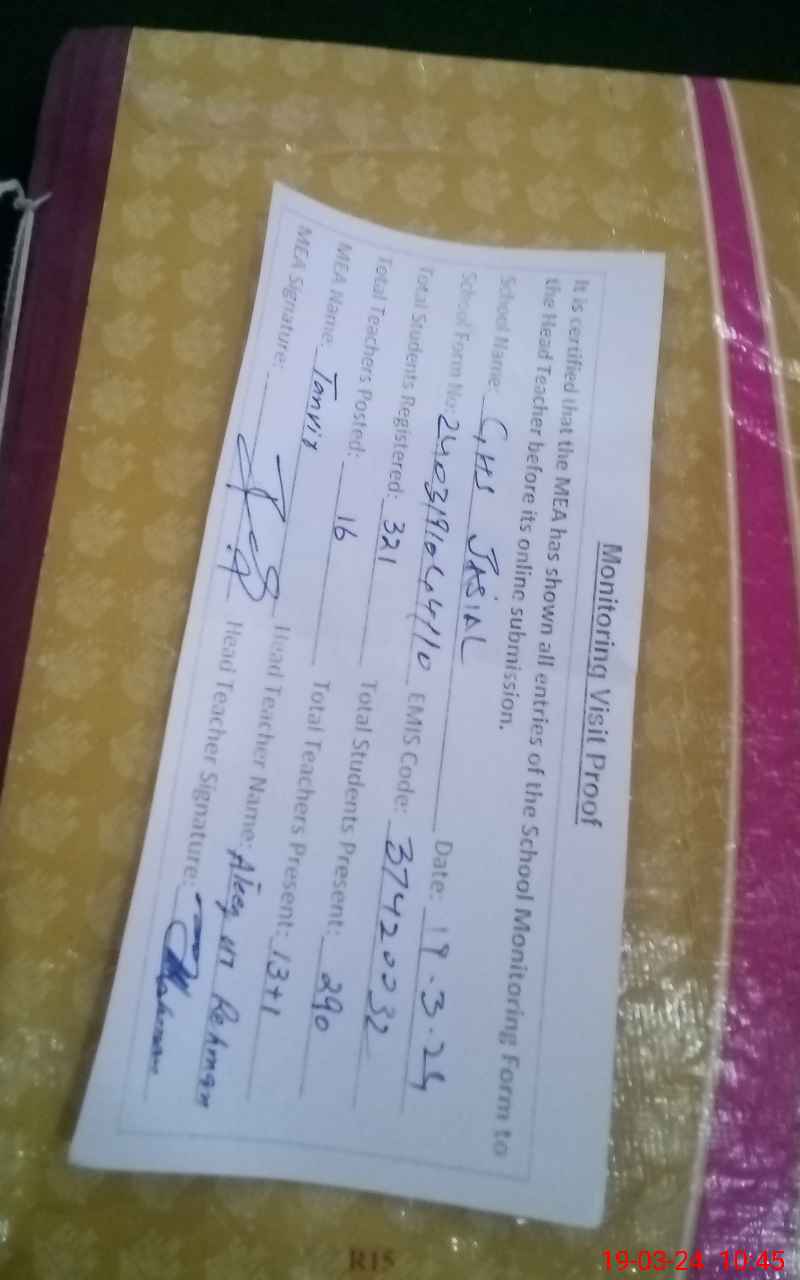 Monitoring Visit Proof
It is certified that the MEA has shown all entries of the School Monitoring Form to
the Head Teacher before its online submission.
School Name: GHS JASIAL Date: 19.3.24
School Form No: EMIS Code: 37420032
Total Students Registered: 321 Total Students Present: 290
Total Teachers Posted: 16 Total Teachers Present: 13+1
MEA Name: Tanvir Head Teacher Name: ur Rehman
MEA Signature: Head Teacher Signature:
R15
19-03-24 10:45